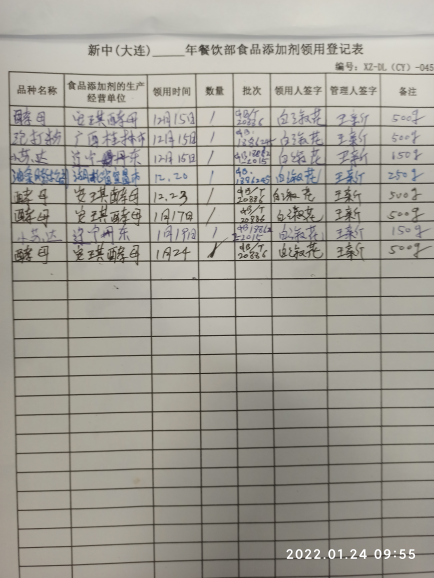 新中(大连)_____年餐饮部食品添加剂领用登记表
编号：XZ-DL（CY）-045
品种名称 食品添加剂的生产经营单位 领用时间 数量 批次 领用人签字 管理人签字 备注
酵母 安琪酵母 12月15日 1 GB/T 20886 白淑花 王新 500g
泡打粉 广西桂林市 12月15日 1 白淑花 王新 500g
小苏达 辽宁丹东 12月16日 1 白淑花 王新 150g
湖北宜昌市 12.20 1 白淑花 王新 250g
酵母 安琪酵母 12.23 1 GB/T 20886 白淑花 王新 500g
酵母 安琪酵母 1月17日 1 GB/T 20886 白淑花 王新 500g
小苏达 辽宁丹东 1月19日 1 白淑花 王新 150g
酵母 安琪酵母 1月24 1 GB/T 20886 白淑花 王新 500g
2022.01.24 09:55